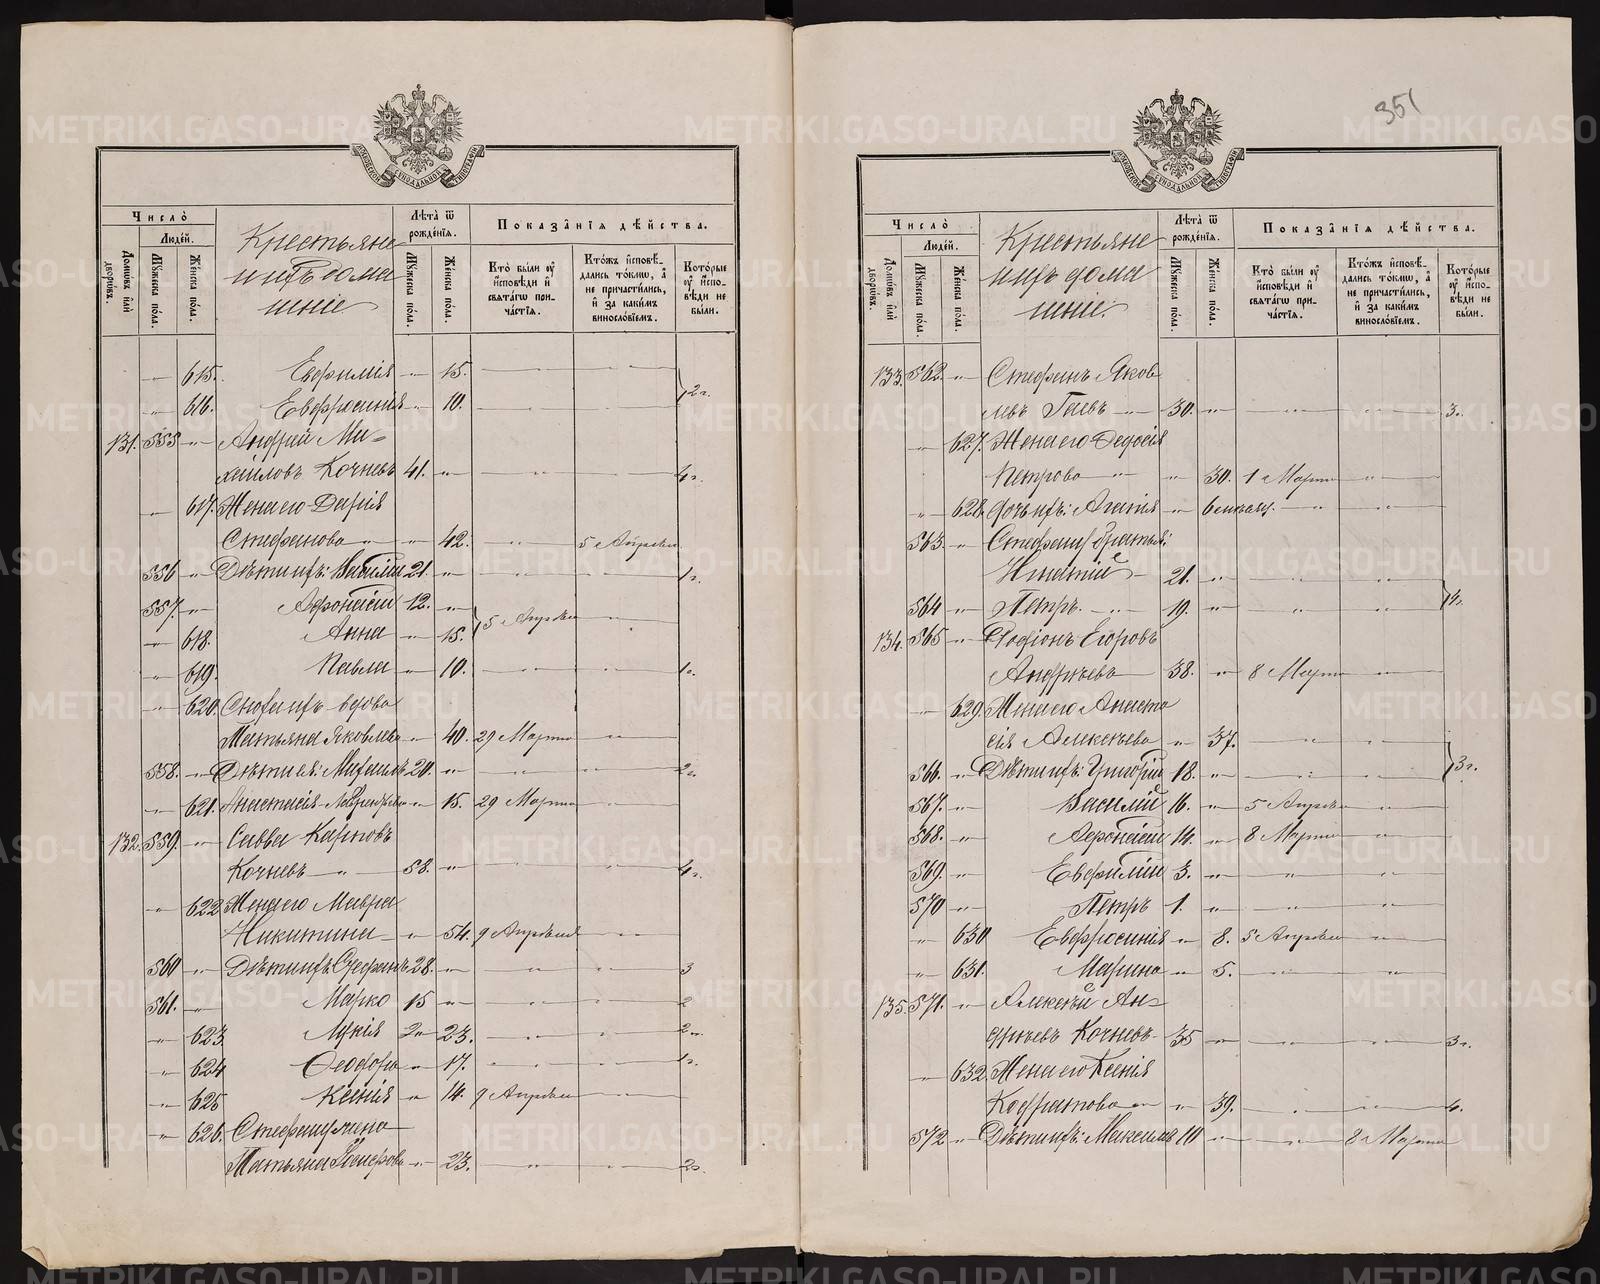 351
Число̀
Людей.
Домѡвъ илѝ дворѡвъ.
Мꙋжеска пола.
Женска пола.
Крестьяне
и ихъ дома
шніе
Лѣта̀ ѿ рожденїѧ.
Мꙋжеска пола.
Женска пола.
Показанїѧ дѣйства.
Кто̀ были оу̑ исповѣди и свѧтагѡ причастїѧ.
Ктожъ исповѣдались токмѡ, а не причастились, и за какимъ винословїемъ.
Которые оу̑ исповѣди не были.
— 615. Евфимія — 15. 2 г.
— 616. Евфросинія — 10.
131. 555 — Андрей Ми-
хайловъ Кочневъ 41. — 4 г.
— 617. Жена его Дарія
Стефанова — 42. — 5 Апрѣля
556 — Дѣти ихъ: Василій 21. — 1 г.
557. — Афонасій 12. —
— 618. Анна — 15. 5 Апрѣля
— 619. Павла — 10. 1 г.
— 620. Сноха ихъ вдова
Татьяна Яковлева — 40. 29 Марта
558. — Дѣти ея: Михаилъ 20. — 2 г.
— 621. Анастасія — 15. 29 Марта
132. 559. — Савва Карповъ
Кочневъ — 58. — 4 г.
— 622 Жена его Мавра
Никитина — 54. 9 Апрѣля
560 — Дѣти ихъ: Стефанъ 28. — 3
561. — Марко 15 — 2
— 623. Лукія — 23. — 2 г.
— 624 Феодора — 17. 1 г.
— 625 Ксенія — 14. 9 Апрѣля
— 626. Стефана жена
Татьяна — 23. 2 г.
Число̀
Людей.
Домѡвъ илѝ дворѡвъ.
Мꙋжеска пола.
Женска пола.
Крестьяне
ихъ дома
шніе.
Лѣта̀ ѿ рожденїѧ.
Мꙋжеска пола.
Женска пола.
Показанїѧ дѣйства.
Кто̀ были оу̑ исповѣди и свѧтагѡ причастїѧ.
Ктожъ исповѣдались токмѡ, а не причастились, и за какимъ винословїемъ.
Которые оу̑ исповѣди не были.
133. 562. — Стефанъ Яков
левъ Гаевъ — 30. — 3.
— 627. Жена его Федосія
Петрова — 30. 1 Марта
— 628. Дочь ихъ: Агапія —
563. — Стефана братья:
Игнатій — 21. —
564 — Петръ. — 19. — 1 г.
134. 565 — Родіонъ Егоровъ
Андреева 38. — 8 Марта
— 629. Жена его Анаста
сія Алексѣева — 37.
566. — Дѣти ихъ: Григорій 18. — 3 г.
567. — Василій 16. — 5 Апрѣля
568. — Афонасій 14. — 8 Марта
569. — Евфимій 3. —
570 — Петръ 1. —
— 630 Евфросинія — 8. 5 Апрѣля
— 631. Марина — 5.
135. 571. — Алексѣй Ан-
дреевъ Кочневъ 35 — 3 г.
— 632 Жена его Ксенія
Кодратова — 39. 4.
572 — Дѣти ихъ: Максимъ 10 — 8 Марта
METRIKI.GASO-URAL.RU